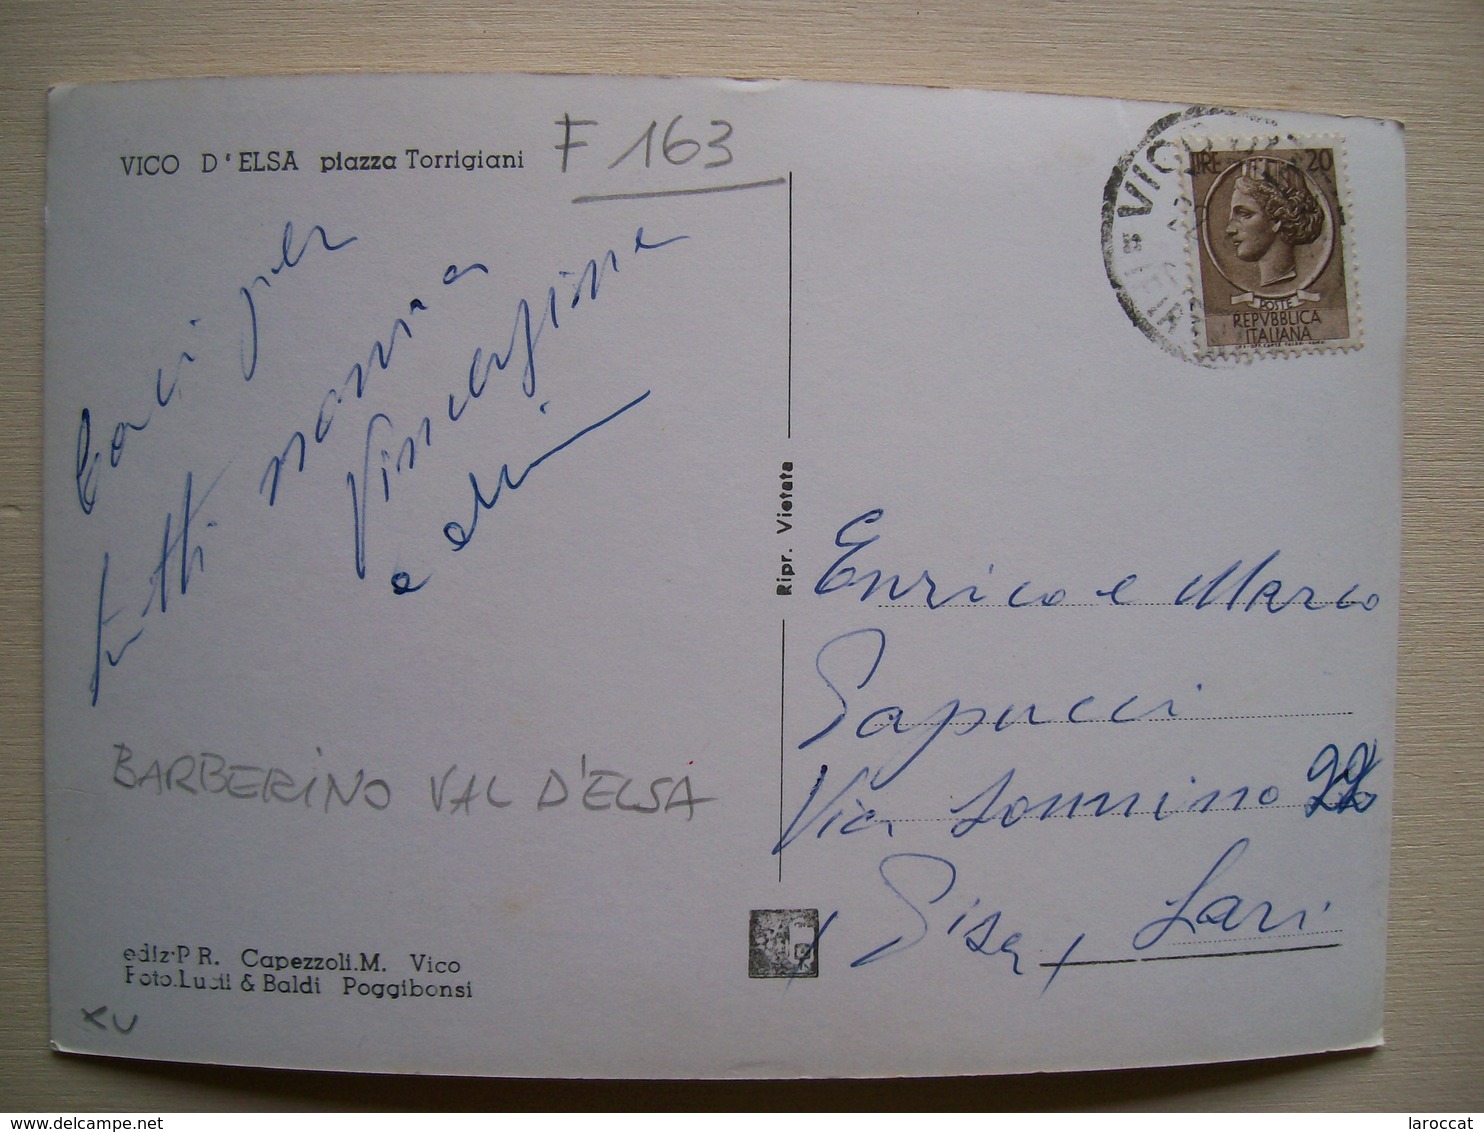 VICO D'ELSA piazza Torrigiani
F 163
baci per
tutti nonna
Vincenzina
e
BARBERINO VAL D'ELSA
ediz.P.R. Capezzoli.M. Vico
Foto.Lucii & Baldi Poggibonsi
XU
Ripr. Vietata
VICO
LIRE 20
POSTE
REPVBBLICA
ITALIANA
Enrico e Marco
Sapucci
Via Sonnino 22
(Pisa) Lari
delcampe.net
laroccat